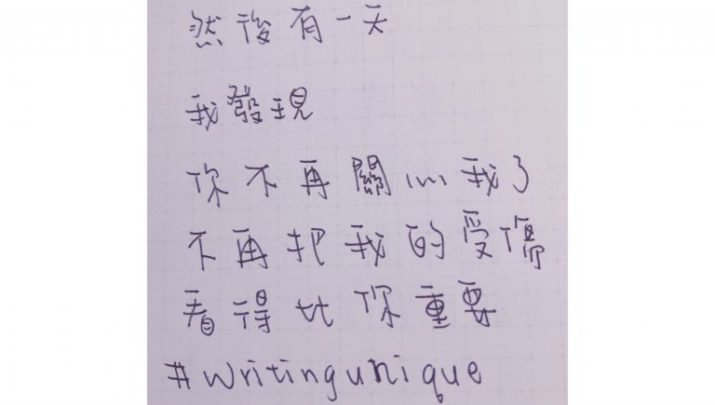 然後有一天
我發現
你不再關心我了
不再把我的受傷
看得比你重要
#writingunique